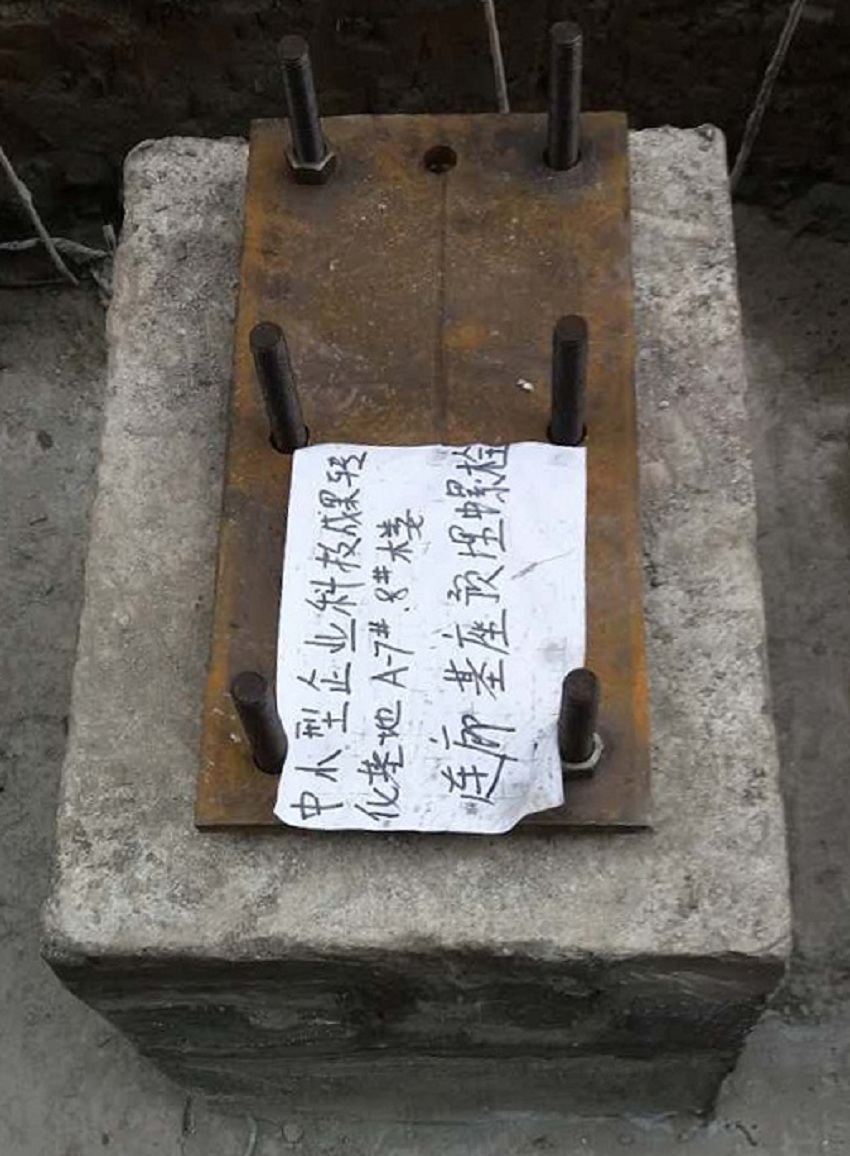 中小型企业科技成果转
化基地A-7#.8#楼
连廊基座预埋螺栓